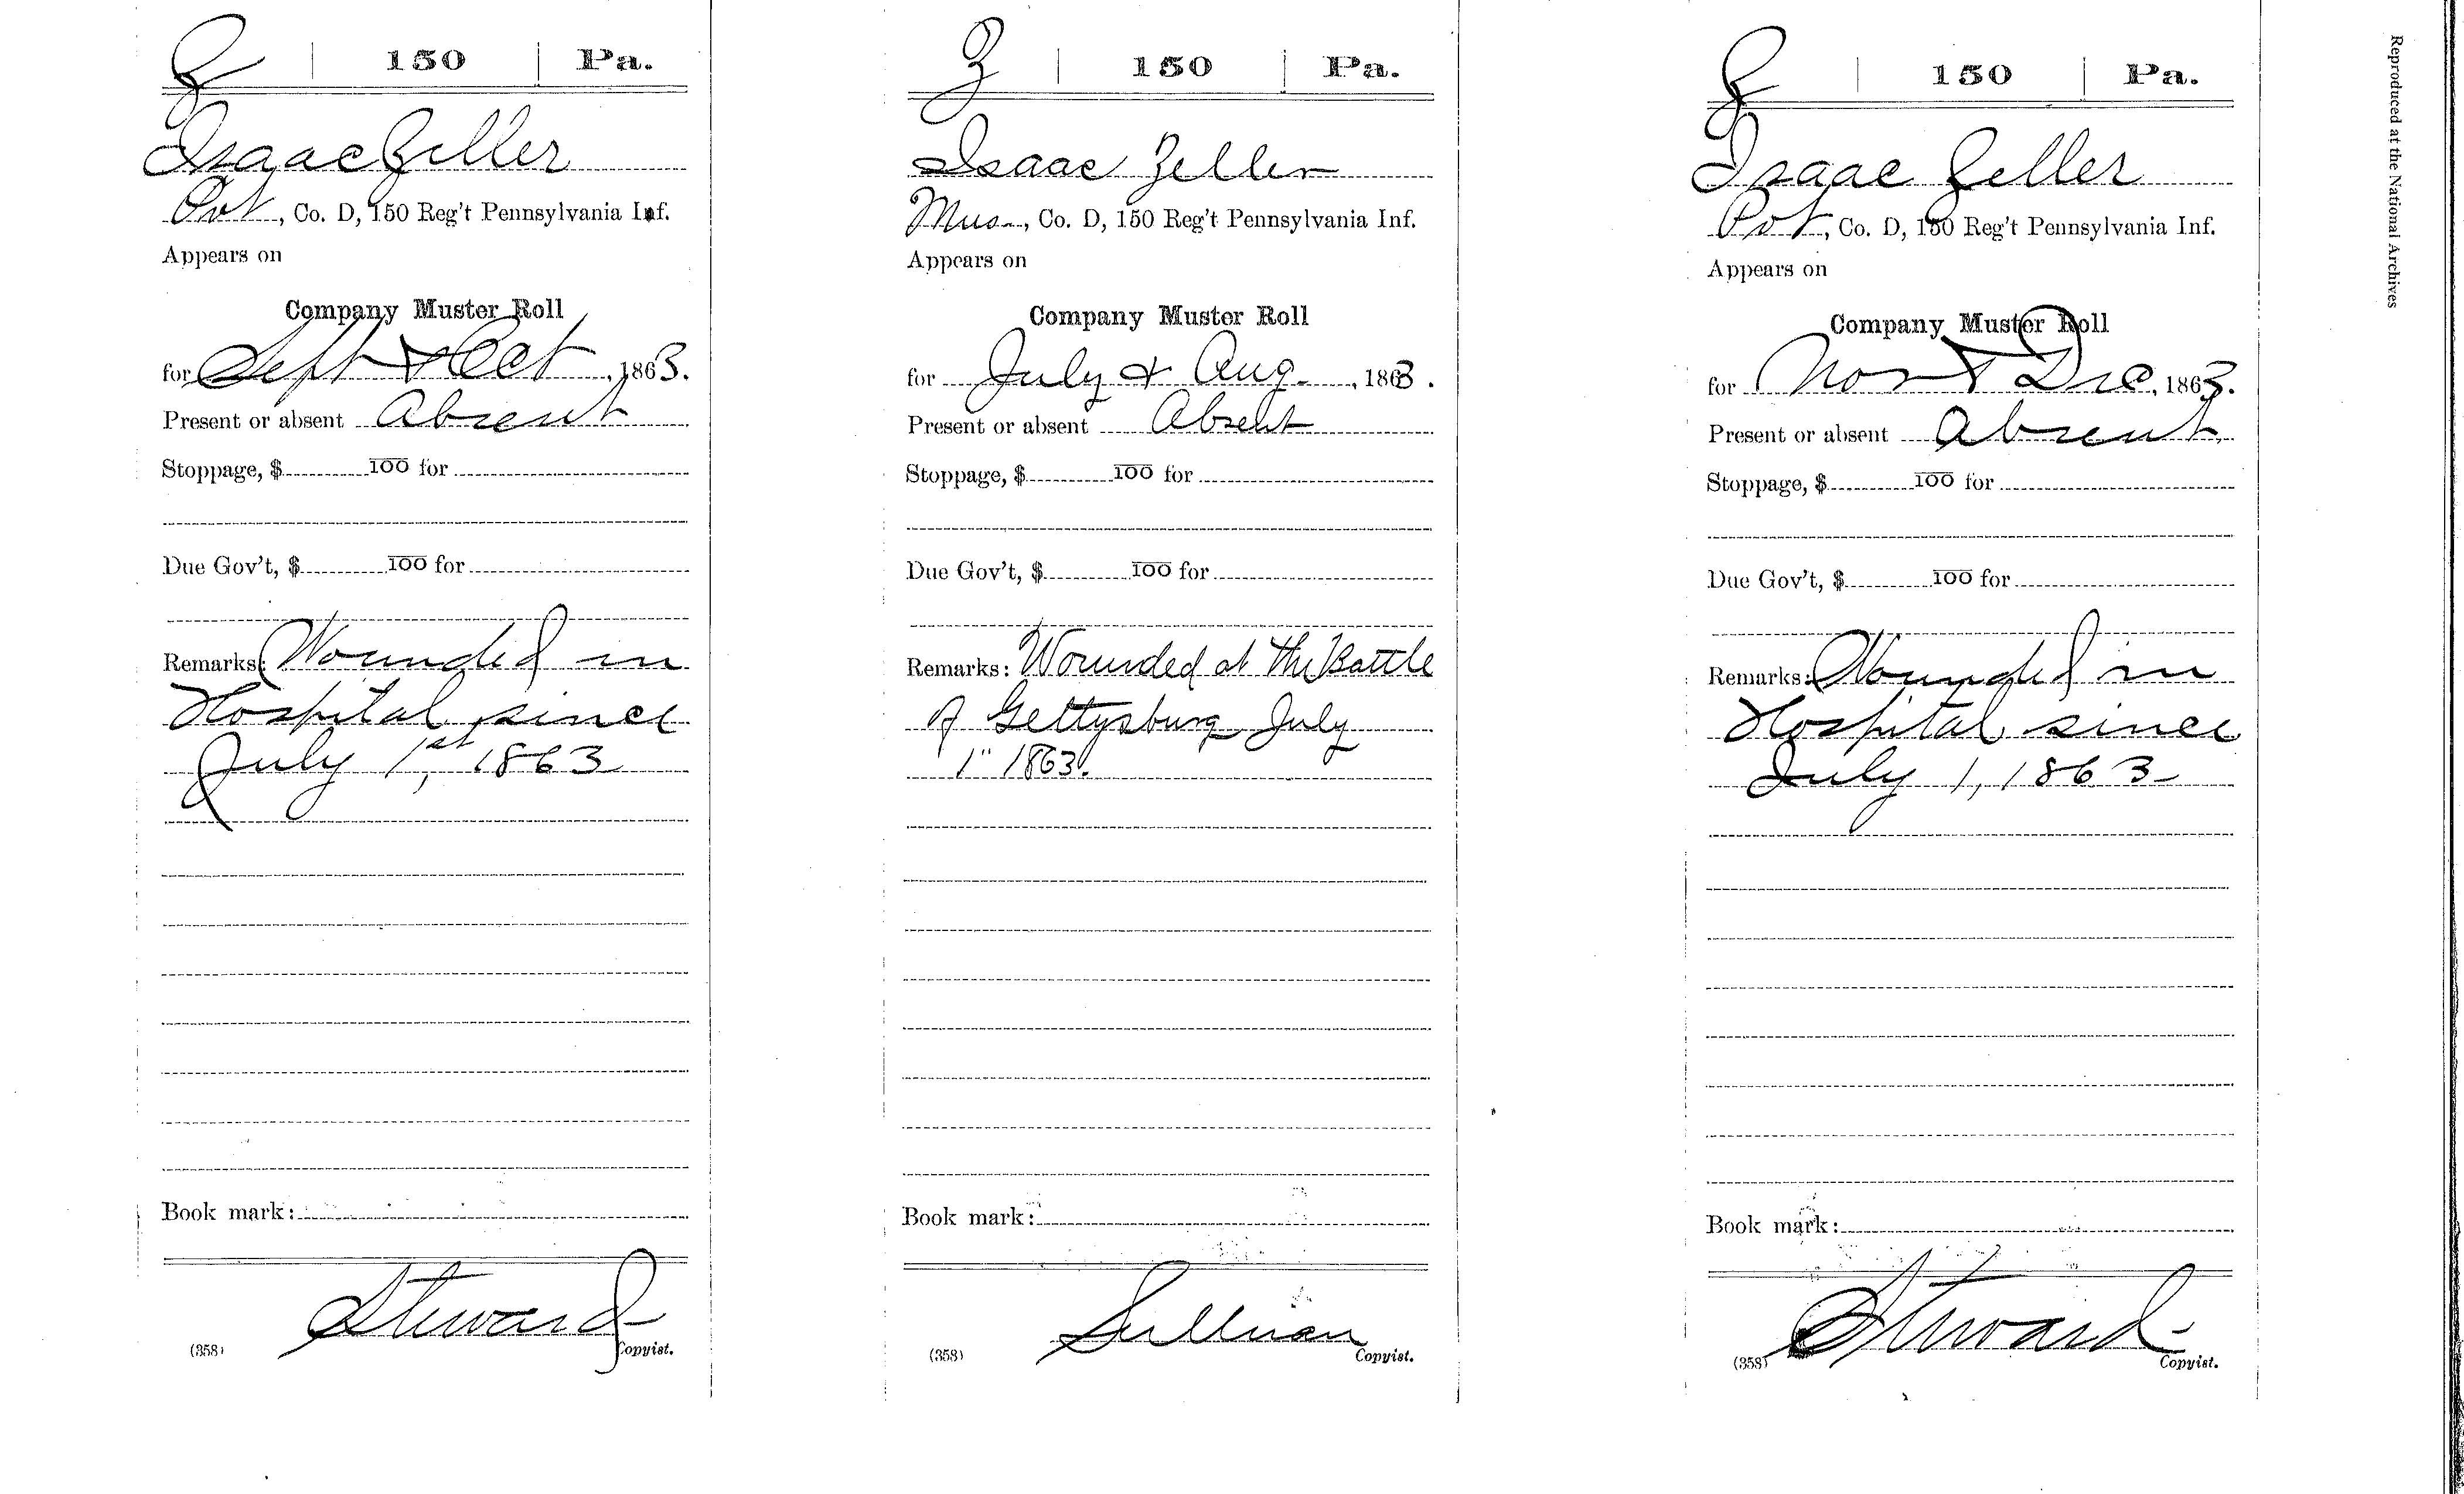 Z | 150 | Pa.
Isaac Zeller
Pvt, Co. D, 150 Reg't Pennsylvania Inf.
Appears on
Company Muster Roll
for Sept & Oct, 1863.
Present or absent Absent
Stoppage, $ 100 for
Due Gov't, $ 100 for
Remarks: Wounded in
Hospital since
July 1st, 1863
Book mark:
Steward
(358) Copyist.
Z | 150 | Pa.
Isaac Zeller
Mus., Co. D, 150 Reg't Pennsylvania Inf.
Appears on
Company Muster Roll
for July & Aug., 1863.
Present or absent Absent
Stoppage, $ 100 for
Due Gov't, $ 100 for
Remarks: Wounded at the Battle
of Gettysburg July
1" 1863.
Book mark:
Sullivan
(358) Copyist.
Z | 150 | Pa.
Isaac Zeller
Pvt, Co. D, 150 Reg't Pennsylvania Inf.
Appears on
Company Muster Roll
for Nov & Dec, 1863.
Present or absent Absent
Stoppage, $ 100 for
Due Gov't, $ 100 for
Remarks: Wounded in
Hospital since
July 1, 1863
Book mark:
Steward
(358) Copyist.
Reproduced at the National Archives